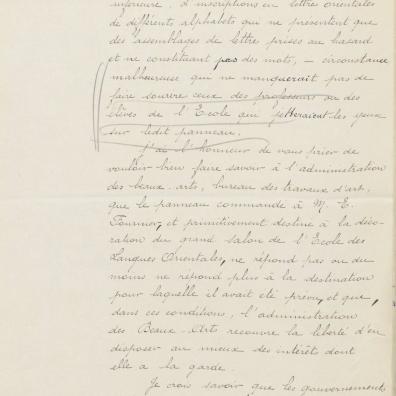 inférieure, d'inscriptions en lettres orientales
de différents alphabets qui ne présentent que
des assemblages de lettres prises au hasard
et ne constituant pas des mots, — circonstance
malheureuse qui ne manquerait pas de
faire sourire ceux des professeurs ou des
élèves de l'Ecole qui jetteraient les yeux
sur ledit panneau.
J'ai l'honneur de vous prier de
vouloir bien faire savoir à l'administration
des beaux-arts, bureau des travaux d'art,
que le panneau commandé à M. E.
Fournier, et primitivement destiné à la déco-
ration du grand salon de l'Ecole des
Langues Orientales, ne répond pas ou du
moins ne répond plus à la destination
pour laquelle il avait été prévu, et que,
dans ces conditions, l'administration
des Beaux-Arts recouvre la liberté d'en
disposer au mieux des intérêt dont
elle a la garde.
Je crois savoir que les gouvernements